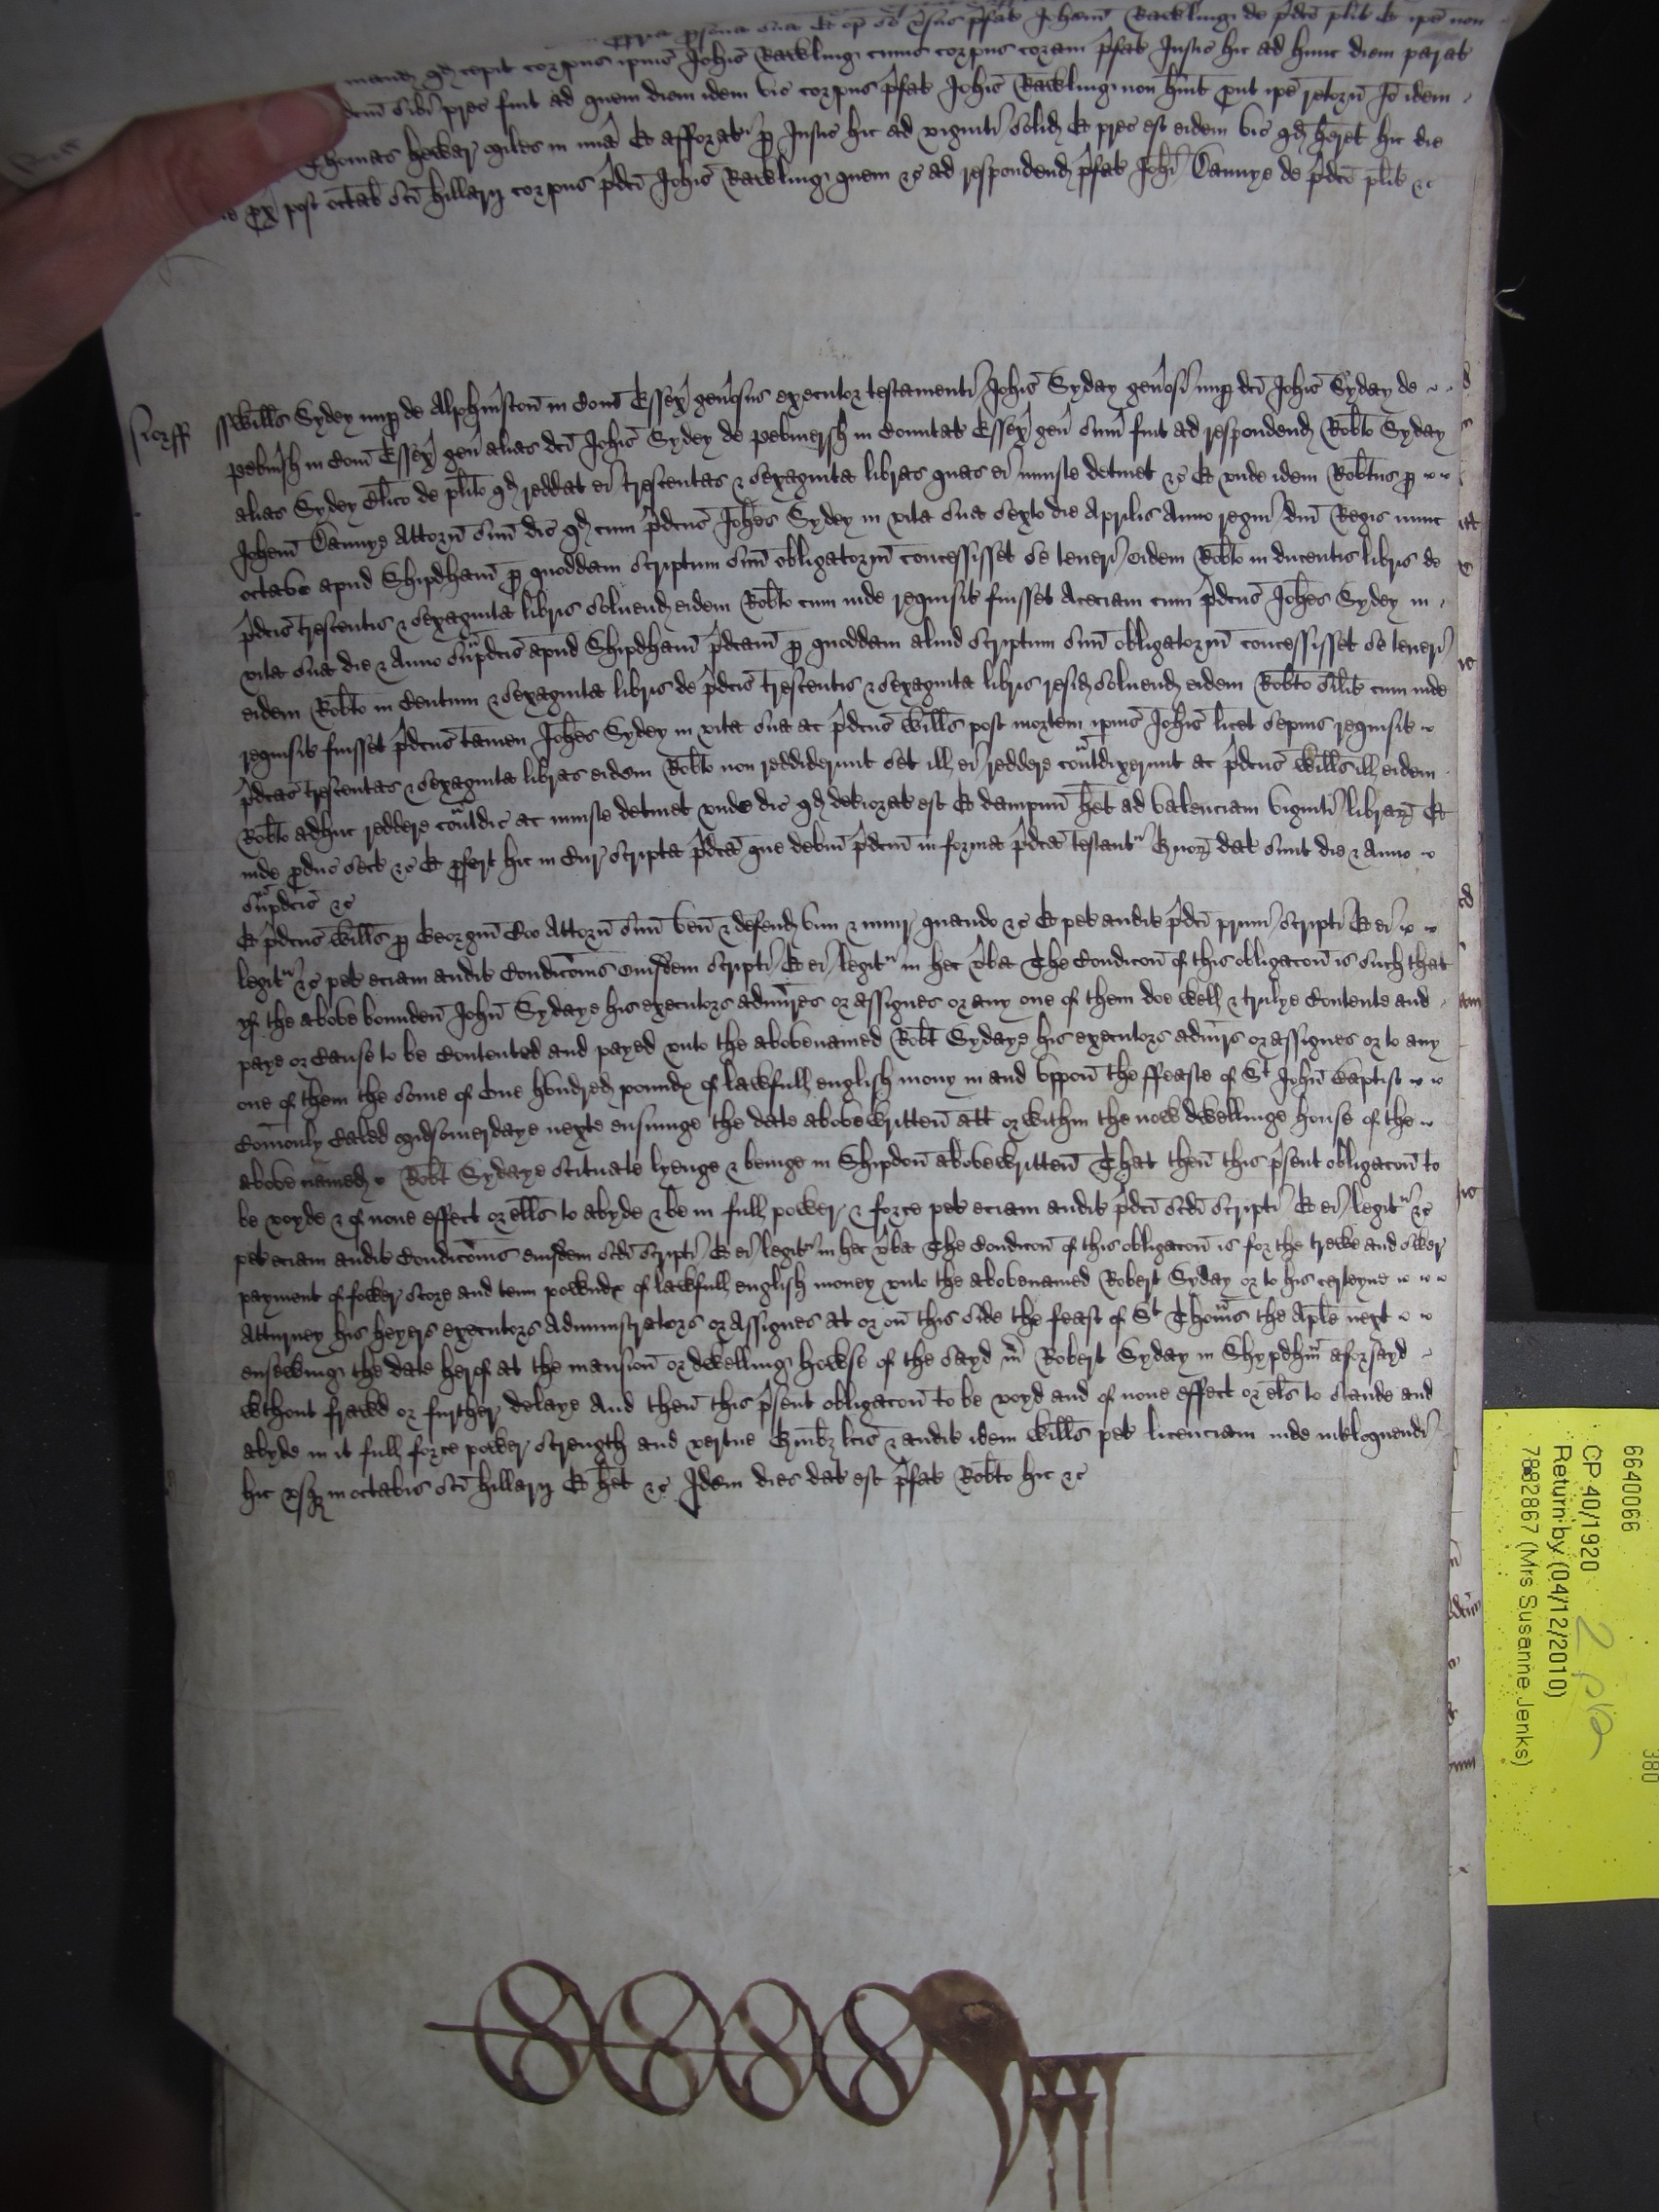 p̱pria p̱sona sua Et op̄ se v̄sus p̄fat Joħem Rawkling de p̄dco płito Et ip̄e non
mand qd cepit corpus ipius Joħis Rawkling cuius corpus coram p̄fat Justic hic ad hunc diem parat
sibi prec fuit ad quem diem idem vic corpus p̄fat Joħis Rawkling non ħuit p̱ut ip̄e retorn̄ Jo idem
Thomas hewar miles in mīa Et afforat p̱ Justic hic ad viginti solid Et prec est eidem vic qd ħeret hic die
p̱x post octab sc̄i hillarij corpus p̄dci Joħis Rawkling quem &c ad respondend p̄fat Joħi Dannye de p̄dco płito &c
Norff
ss Wills Sydey nup̱ de Alphinston in Com Essex gen̄osus executor testamenti Joħis Syday gen̄osi nup̱ dci Joħis Syday de
Pebm̄sh in Com Essex gen̄ alias dci Joħis Sydey de Pebmersh in Comitat Essex gen̄ sum̄ fuit ad respondend Rob̄to Syday
alias Sydey cl̄ico de płito qd reddat ei trescentas & sexaginta libras quas ei iniuste detinet &c Et vnde idem Rob̄tus p̱
Joħem Dannye Attorn̄ suū dic qd cum p̄dcus Joħes Sydey in vita sua sexto die Aprilis Anno regni dn̄i Regis nunc
octavo apud Shipdham p̱ quoddam scriptum suū obligatoriū concessisset se teneri eidem Rob̄to in ducentis libris de
p̄dcis trescentis & sexaginta libris soluend eidem Rob̄to cum inde requisit fuisset Aceciam cum p̄dcus Joħes Sydey in
vita sua die & Anno sup̄dcis apud Shipdham p̄dcam p̱ quoddam aliud scriptum suū obligatoriū concessisset se teneri
eidem Rob̄to in Centum & sexaginta libris de p̄dcis trescentis & sexaginta libris resid soluend eidem Rob̄to sil̄it cum inde
requisit fuisset p̄dcus tamen Joħes Sydey in vita sua ac p̄dcus Wills post mortem ipius Joħis licet sepius requisit
p̄dcas trescentas & sexaginta libras eidem Rob̄to non reddiderunt set ill ei reddere contˣdixerunt ac p̄dcus Wills ill eidem
Rob̄to adhuc reddere contˣdic ac iniuste detinet vnde dic qd deteriorat est Et dampnū ħet ad valenciam viginti librar̄ Et
inde p̱duc sect &c Et p̱fert hic in Cur scripta p̄dca que debitū p̄dcum in forma p̄dca testantʳ Quor̄ dat sunt die & Anno
sup̄dcis &c
Et p̄dcus Wills p̱ Georgiū Coo Attorn̄ suū ven̄ & defend vim & iniur quando &c Et pet audit p̄dci primi scripti Et ei
legitʳ &c pet eciam audit Condicōnis eiusdem scripti Et ei legitʳ in hec v̄ba The Condicōn of this obligacōn is such that
yf the above bounden John̄ Sydaye his executors admīres or assignes or any one of them doe well & trulye Contente and
paye or Cause to be Contented and payed vnto the abovenamed Rob̄t Sydaye his executors admīrs or assignes or to any
one of them the some of One hondred poundx of lawfull english mony in and vppon̄ the ffeaste of Sᵗ John̄ Baptist
Com̄only Caled Midsomerdaye nexte ensuinge the date abovewritten̄ att or within the now dwellinge house of the
above named Rob̄t Sydaye scituate lyenge & beinge in Shipdon̄ abovewritten̄ That then̄ this p̄sent obligacōn to
be voyde & of none effect or ells to abyde & be in full power & force pet eciam audit p̄dci scd̄i scripti Et ei legitʳ &c
pet eciam audit Condicōnis eiusdem scd̄i scripti Et ei legitʳ in hec v̄ba The Condicōn of this obligacōn is for the trewe and swer
payment of fower score and tenn powndx of lawfull english money vnto the abovenamed Robert Syday or to his certeyne
Atturney his heyers executors Administrators or Assignes at or on̄ this side the feast of Sᵗ Thoms the Aple next
ensewing the date herof at the mansion̄ or dwelling howse of the sayd mʳ Robert Syday in Shypdhm aforsayd
wthout frawd or further delaye And then̄ this p̄sent obligacōn to be voyd and of none effect or els to stande and
abyde in it full force power strength and vertue Quibȝ lcis & audit idem Wills pet licenciam inde int̄loquendi
hic vsqȝ in octabis sc̄i hillarij Et ħet &c Idem dies dat est p̄fat Rob̄to hic &c
6640066
CP 40/1920
Return by (04/12/2010)
7882867 (Mrs Susanne Jenks)
380